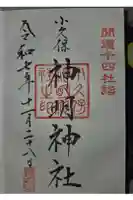 開運十四社詣
小久保
神明神社
令和 年十一月二十八日